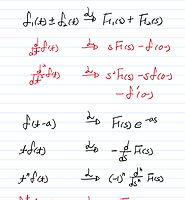 f₁(t) ± f₂(t) →ℒ F₁(s) + F₂(s)
d/dt f(t) →ℒ sF(s) - f(0-)
d²/dt² f(t) →ℒ s²F(s) - sf(0-)
- f'(0-)
f(t-a) →ℒ F(s) e^-as
t f(t) →ℒ - d/ds F(s)
tⁿ f(t) →ℒ (-1)ⁿ dⁿ/dsⁿ F(s)